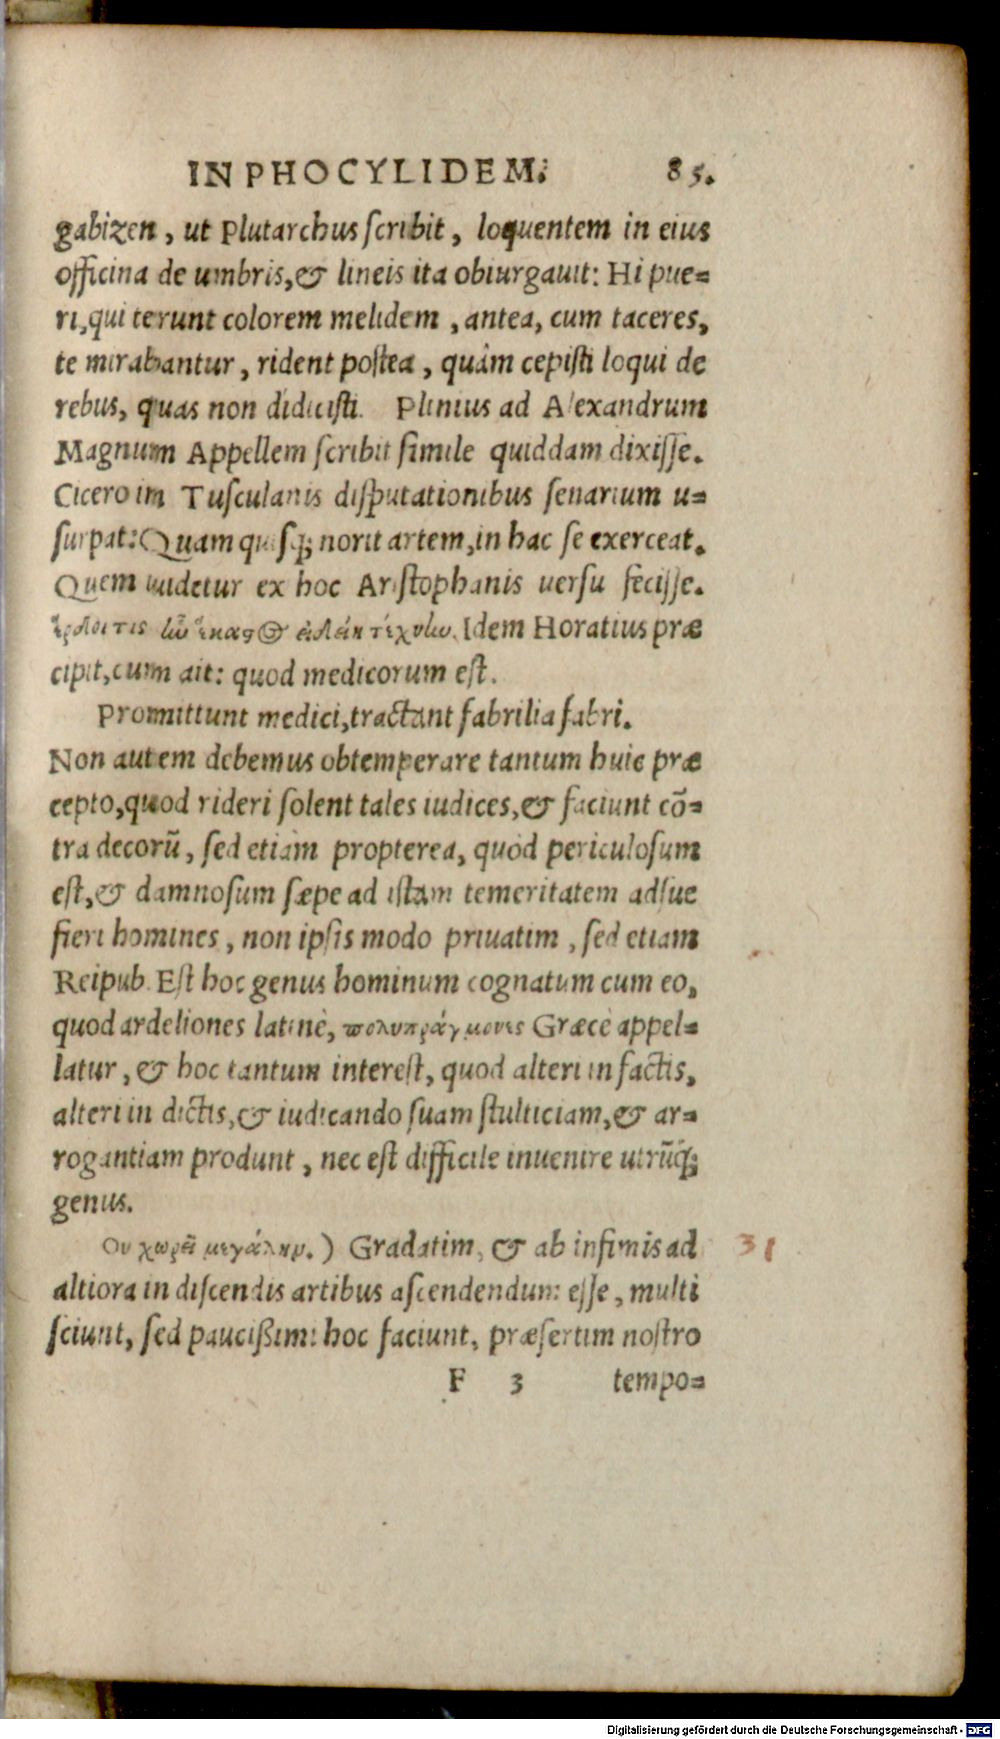 IN PHOCYLIDEM. 85.
gabizen, ut Plutarchus ſcribit, loquentem in eius
officina de umbris, & lineis ita obiurgauit: Hi pue=
ri, qui terunt colorem melidem, antea, cum taceres,
te mirabantur, rident poſtea, quàm cepiſti loqui de
rebus, quas non didiciſti. Plinius ad Alexandrum
Magnum Appellem ſcribit ſimile quiddam dixiſſe.
Cicero im Tuſculanis diſputationibus ſenarium u=
ſurpat: Quam quiſq; norit artem, in hac ſe exerceat.
Quem uidetur ex hoc Ariſtophanis uerſu feciſſe.
ἔρδοι τις ἣν ἕκαςος εἰδείη τέχνην. Idem Horatius præ
cipit, cum ait: quod medicorum eſt.
Promittunt medici, tractant fabrilia fabri.
Non autem debemus obtemperare tantum huic præ
cepto, quod rideri ſolent tales iudices, & faciunt cō=
tra decorū, ſed etiam propterea, quòd periculoſum
eſt, & damnoſum ſæpe ad iſtam temeritatem adſue
fieri homines, non ipſis modo priuatim, ſed etiam
Reipub. Eſt hoc genus hominum cognatum cum eo,
quod ardeliones latinè, πολυπράγμονες Græcè appel=
latur, & hoc tantum intereſt, quod alteri in factis,
alteri in dictis, & iudicando ſuam ſtulticiam, & ar=
rogantiam produnt, nec eſt difficile inuenire utrūq;
genus.
Ου χωρεῖ μεγάλην.) Gradatim, & ab infimis ad 31
altiora in diſcendis artibus aſcendendum eſſe, multi
ſciunt, ſed pauciſsimi hoc faciunt, præſertim noſtro
F 3 tempo=
Digitalisierung gefördert durch die Deutsche Forschungsgemeinschaft - DFG